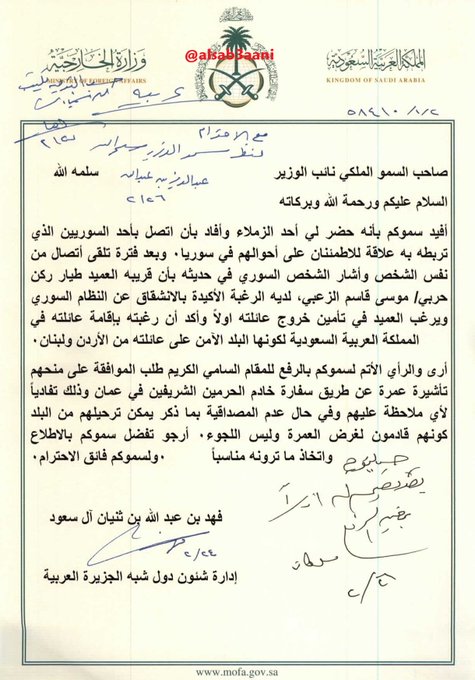 @alsab3aani
وزارة الخارجية
MINISTRY OF FOREIGN AFFAIRS
المملكة العربية السعودية
KINGDOM OF SAUDI ARABIA
مع الاحترام
عبدالعزيز بن عبدالله
٢/٢٦
صاحب السمو الملكي نائب الوزير سلمه الله
السلام عليكم ورحمة الله وبركاته
أفيد سموكم بأنه حضر لي أحد الزملاء وأفاد بأن اتصل بأحد السوريين الذي
تربطه به علاقة للاطمئنان على أحوالهم في سوريا. وبعد فترة تلقى أتصال من
نفس الشخص وأشار الشخص السوري في حديثه بأن قريبه العميد طيار ركن
حربي/ موسى قاسم الزعبي، لديه الرغبة الأكيدة بالانشقاق عن النظام السوري
ويرغب العميد في تأمين خروج عائلته اولاً وأكد أن رغبته بإقامة عائلته في
المملكة العربية السعودية لكونها البلد الآمن على عائلته من الأردن ولبنان.
أرى والرأي الأتم لسموكم بالرفع للمقام السامي الكريم طلب الموافقة على منحهم
تأشيرة عمرة عن طريق سفارة خادم الحرمين الشريفين في عمان وذلك تفادياً
لأي ملاحظة عليهم وفي حال عدم المصداقية بما ذكر يمكن ترحيلهم من البلد
كونهم قادمون لغرض العمرة وليس اللجوء. أرجو تفضل سموكم بالاطلاع
واتخاذ ما ترونه مناسباً. ولسموكم فائق الاحترام.
فهد بن عبد الله بن ثنيان آل سعود
٢/٢٤
إدارة شئون دول شبه الجزيرة العربية
٢/٢٦
www.mofa.gov.sa